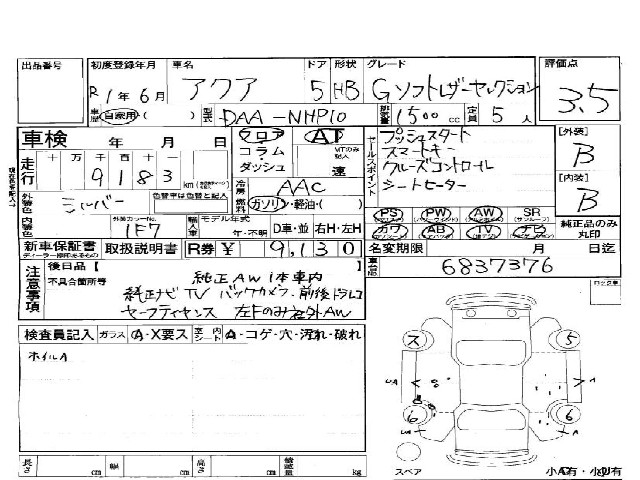 出品番号 初度登録年月 車名 ドア 形状 グレード 評価点
R1年6月 アクア 5 HB Gソフトレザーセレクション 3.5
車歴 自家用 ( ) 型式 DAA-NHP10 排気量 1500cc 定員 5人
車検 年 月 日 フロア・コラム・ダッシュ AT MTのみ記入 速
セールスポイント プッシュスタート
スマートキー
クルーズコントロール
シートヒーター
[外装] B
[内装] B
走行 十 万 千 百 十 一
9183 km
冷房 AAC
外装色 シルバー 色替車は色替と記入 燃料 ガソリン・軽油( )
内装色 外装カラーNo. 1F7 輸入車 モデル年式 年・不明 D車・並 右H・左H
PS PW AW SR (サンルーフ)
カワ AB TV ナビ
純正品のみ丸印
新車保証書 取扱説明書 R券 ¥ 9,130 名変期限 月 日迄
ディーラー捺印あるもの
車台No. 6837376
注意事項 後日品 [ ]
不具合箇所等 純正AW1本車内
純正ナビTV バックカメラ・前後ドラレコ
セーフティセンス 左Fのみ社外AW
検査員記入 ガラス A・X要ス 室内シート A・コゲ・穴・汚れ・破れ
ホイルA
ス 5
UA A
6 6
UA A
スペア 小A有・小U有
長さ cm 幅 cm 高さ cm 積載量 kg